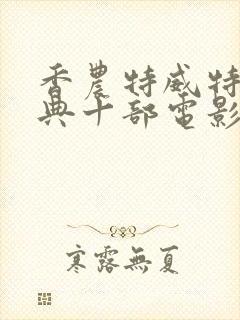 香農特威特
典十部電影
寒露無夏